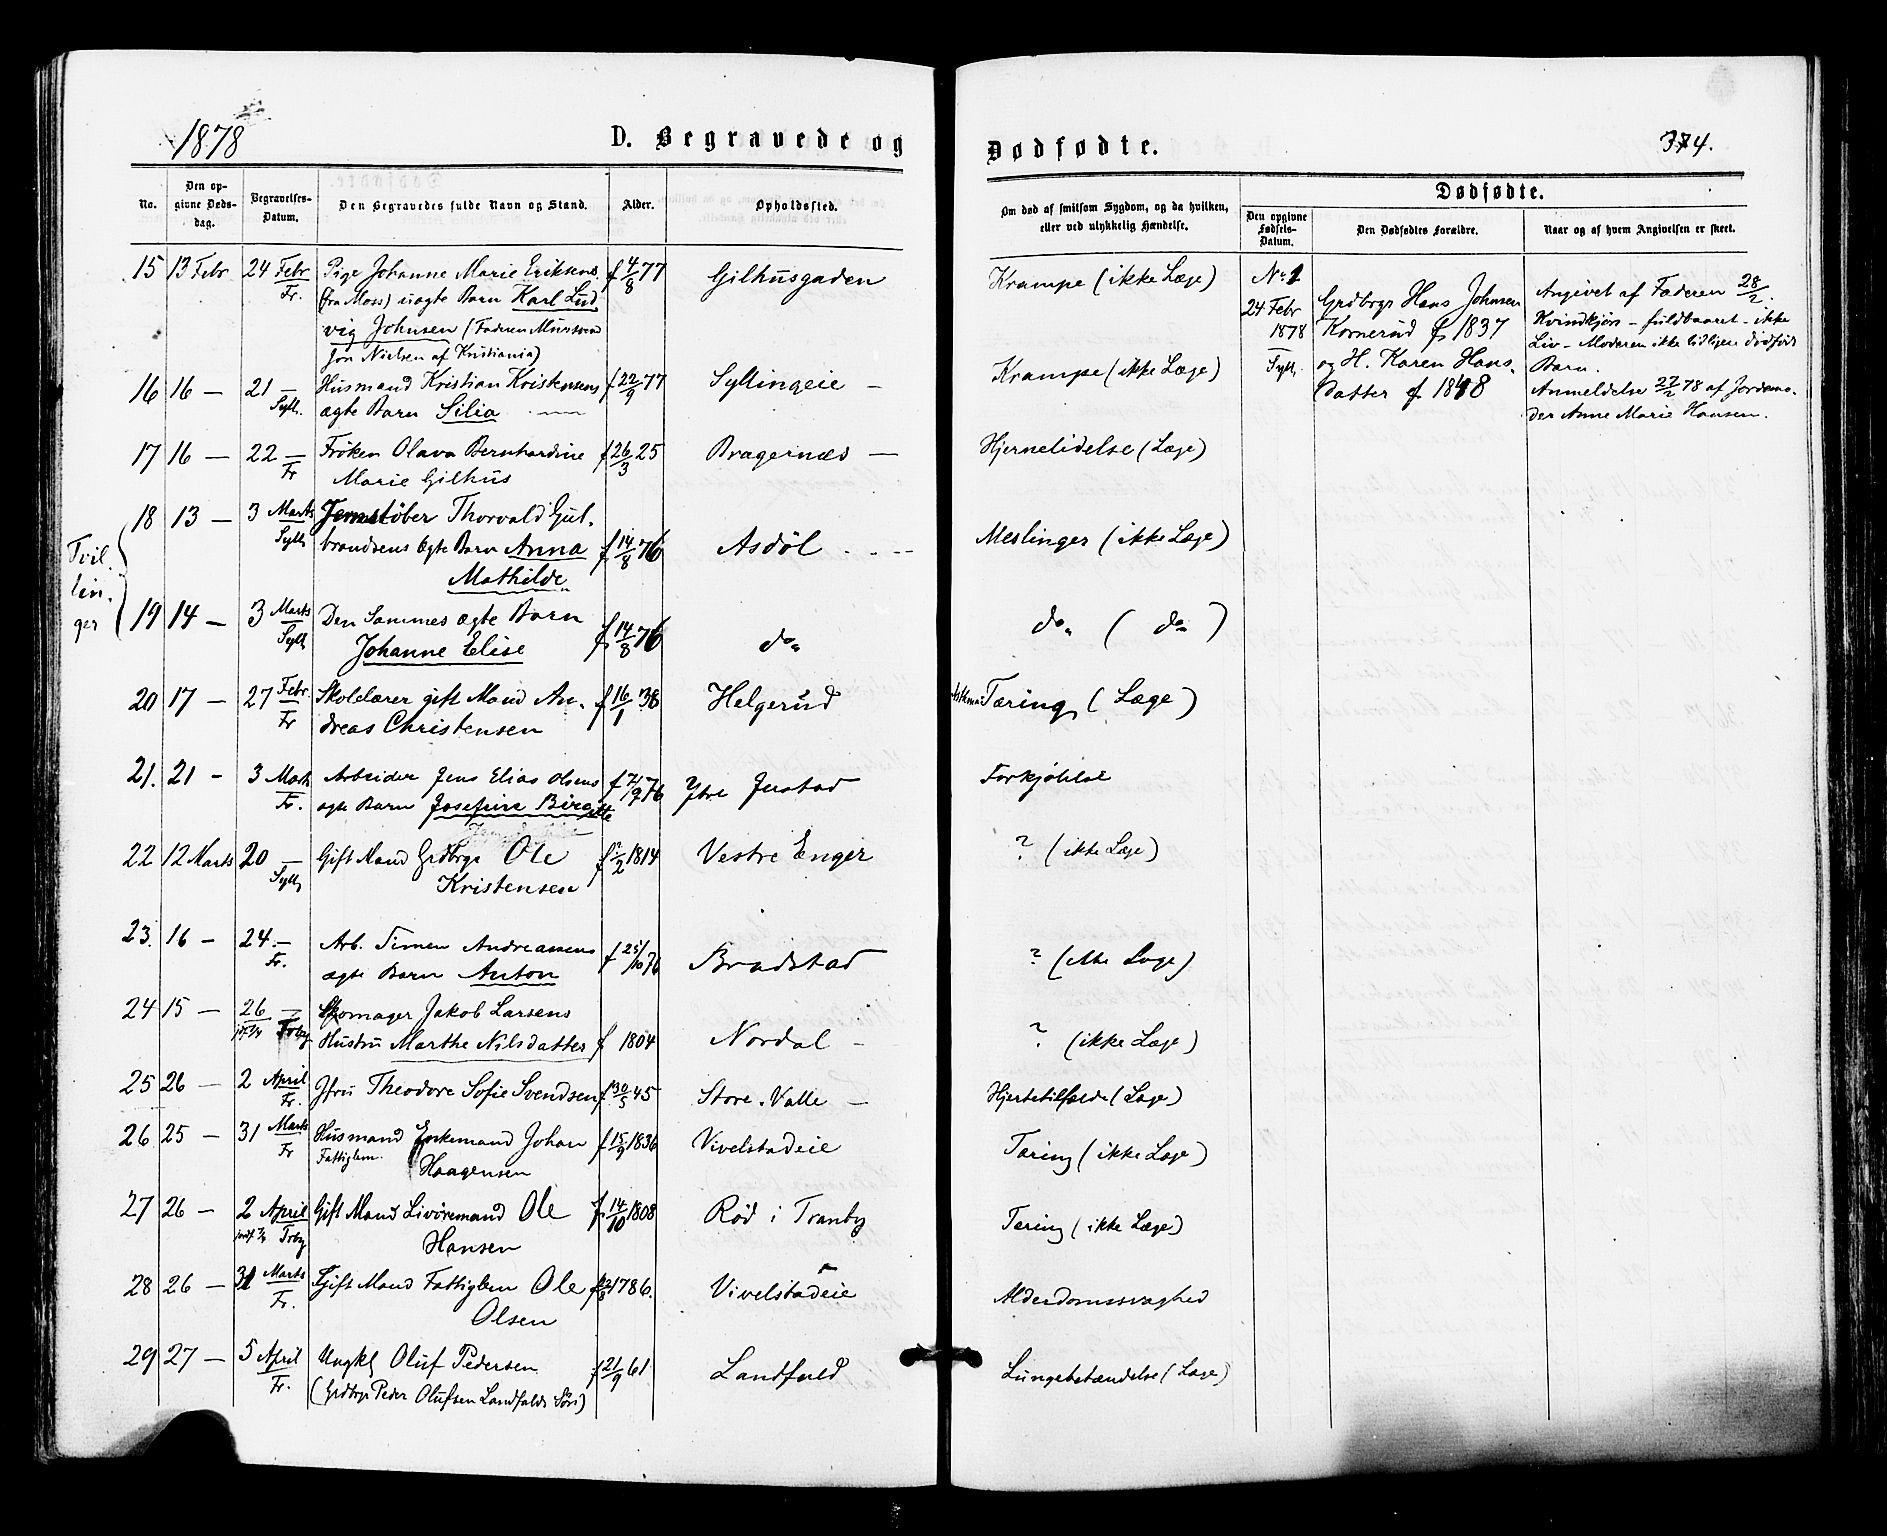 1878
D. Begravede og
Dødfødte.
374.
No.
Den opgivne Dødsdag.
Begravelses-Datum.
Den Begravedes fulde Navn og Stand.
Alder.
Opholdssted.
Om død af smitsom Sygdom, og da hvilken, eller ved ulykkelig Hændelse.
Dødfødte.
Den opgivne Fødsels-Datum.
Den Dødfødtes Forældre.
Naar og af hvem Angivelsen er skeet.
15 13 Febr 24 Febr Pige Johanne Marie Eriksens f 4/8 77 Gilhusgaden Krampe (ikke Læge)
Fr. (fra Moss) uægte Barn Karl Lud
vig Johnsen (Faderen Murssvend
Jon Nielsen af Kristiania)
16 16 — 21 — Husmand Kristian Kristensens f 22/9 77 Syllingeie — Krampe (ikke Læge)
Syll. ægte Barn Silia
17 16 — 22 — Frøken Olava Bernhardine f 26/3 25 Bragernæs — Hjernelidelse (Læge)
Fr Marie Gilhus
Tvil
lin
ger
18 13 — 3 Marts Jernstøber Thorvald Gul-
Syll brandsens ægte Barn Anna f 14/8 76 Asdøl Meslinger (ikke Læge)
Mathilde
19 14 — 3 Marts Den Sammes ægte Barn do (do)
Syll Johanne Elise f 14/8 76 do
20 17 — 27 Febr. Skolelærer gift Mand An- f 16/1 38 Helgerud Asthma Tæring (Læge)
Fr dreas Christensen
21. 21 - 3 Marts Arbeider Jens Elias Olsens f 7/9 76 Ytre Justad Forkjølelse
Fr. ægte Barn Josefine Birgitte
22 12 Marts 20 — Gift Mand Grdbrgr Ole 1814 Vestre Enger ? (ikke Læge)
Syll Kristensen
23. 16 - 24. — Arb. Simen Andreassens f 25/10 76 Bradstad ? (ikke Læge)
Fr. ægte Barn Anton
24 15 — 26 — Skomager Jakob Larsens
Trby Hustru Marthe Nilsdatter f 1804 Nordal — ? (ikke Læge)
25 26 — 2 April Jfru Theodore Sofie Svendsen f 30/5 45 Store Valle — Hjertetilfælde (Læge)
Fr.
26 25 — 31 Marts Husmand Enkemand Johan f 15/9 1836 Vivelstadeie Tæring (ikke Læge)
Fr Fattiglem. Haagensen
27 26 — 2 April Gift Mand Livøremand Ole f 14/10 1808 Rød i Tranby Tæring (ikke Læge)
Trby Hansen
28 26 — 31 Marts Gift Mand Fattiglem Ole 1786. Vivelstadeie Alderdomssvaghed
Fr. Olsen
29 27 — 5 April Ungkl Oluf Pedersen f 21/9 61 Landfald Lungebetændelse (Læge)
Fr. (Grdbrgr Peder Olufsen Landfalds Søn)
No 1
24 Febr
1878
Syll.
Grdbrgr Hans Johnsen
Kornerud f 1837
og H. Karen Hans-
datter f 1848
Angivet af Faderen 28/2.
Kvindkjøn - fuldbaaret - ikke
Liv - Moderen ikke tidligere dødfødt
Barn.
Anmeldelse 27/2 78 af Jordemo-
der Anne Marie Hansen.